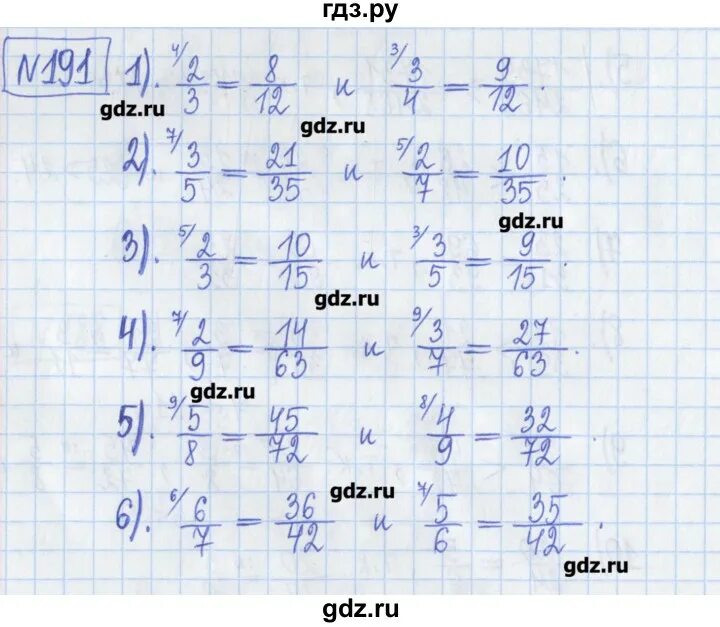 гдз.ру
№191 1). 4/ 2/3 = 8/12 и 3/ 3/4 = 9/12.
gdz.ru
gdz.ru
2). 7/ 3/5 = 21/35 и 5/ 2/7 = 10/35.
gdz.ru
3). 5/ 2/3 = 10/15 и 3/ 3/5 = 9/15.
gdz.ru
4). 7/ 2/9 = 14/63 и 9/ 3/7 = 27/63.
gdz.ru
5). 9/ 5/8 = 45/72 и 8/ 4/9 = 32/72.
gdz.ru
6). 6/ 6/7 = 36/42 и 7/ 5/6 = 35/42.
gdz.ru
gdz.ru